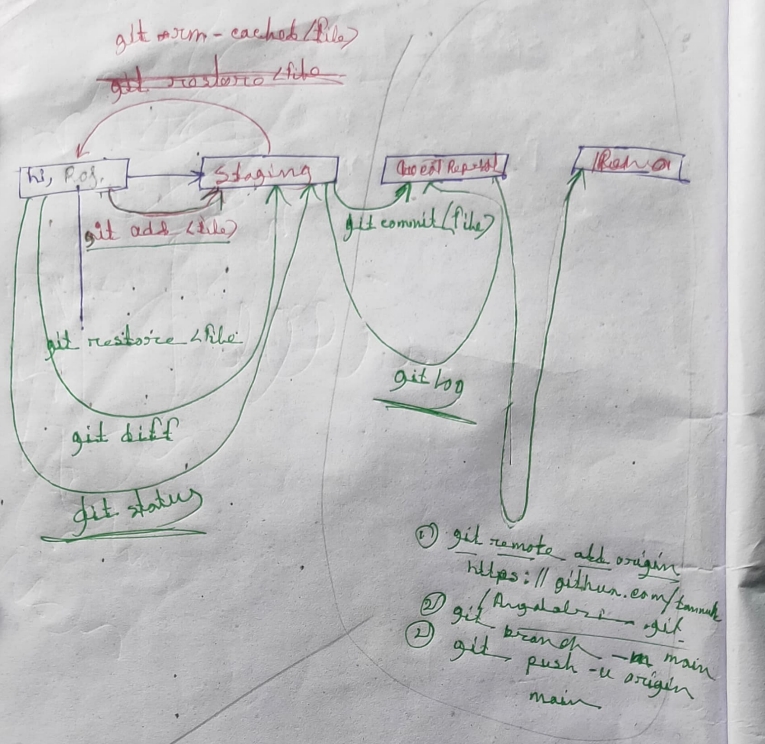 git rm - cached <file>
git restore <file
Staging
git add <file>
git commit <file>
git restore <file
git log
git diff
git status
1) git remote add origin
https://github.com/
.git
2) git branch -m main
2) git push -u origin
main